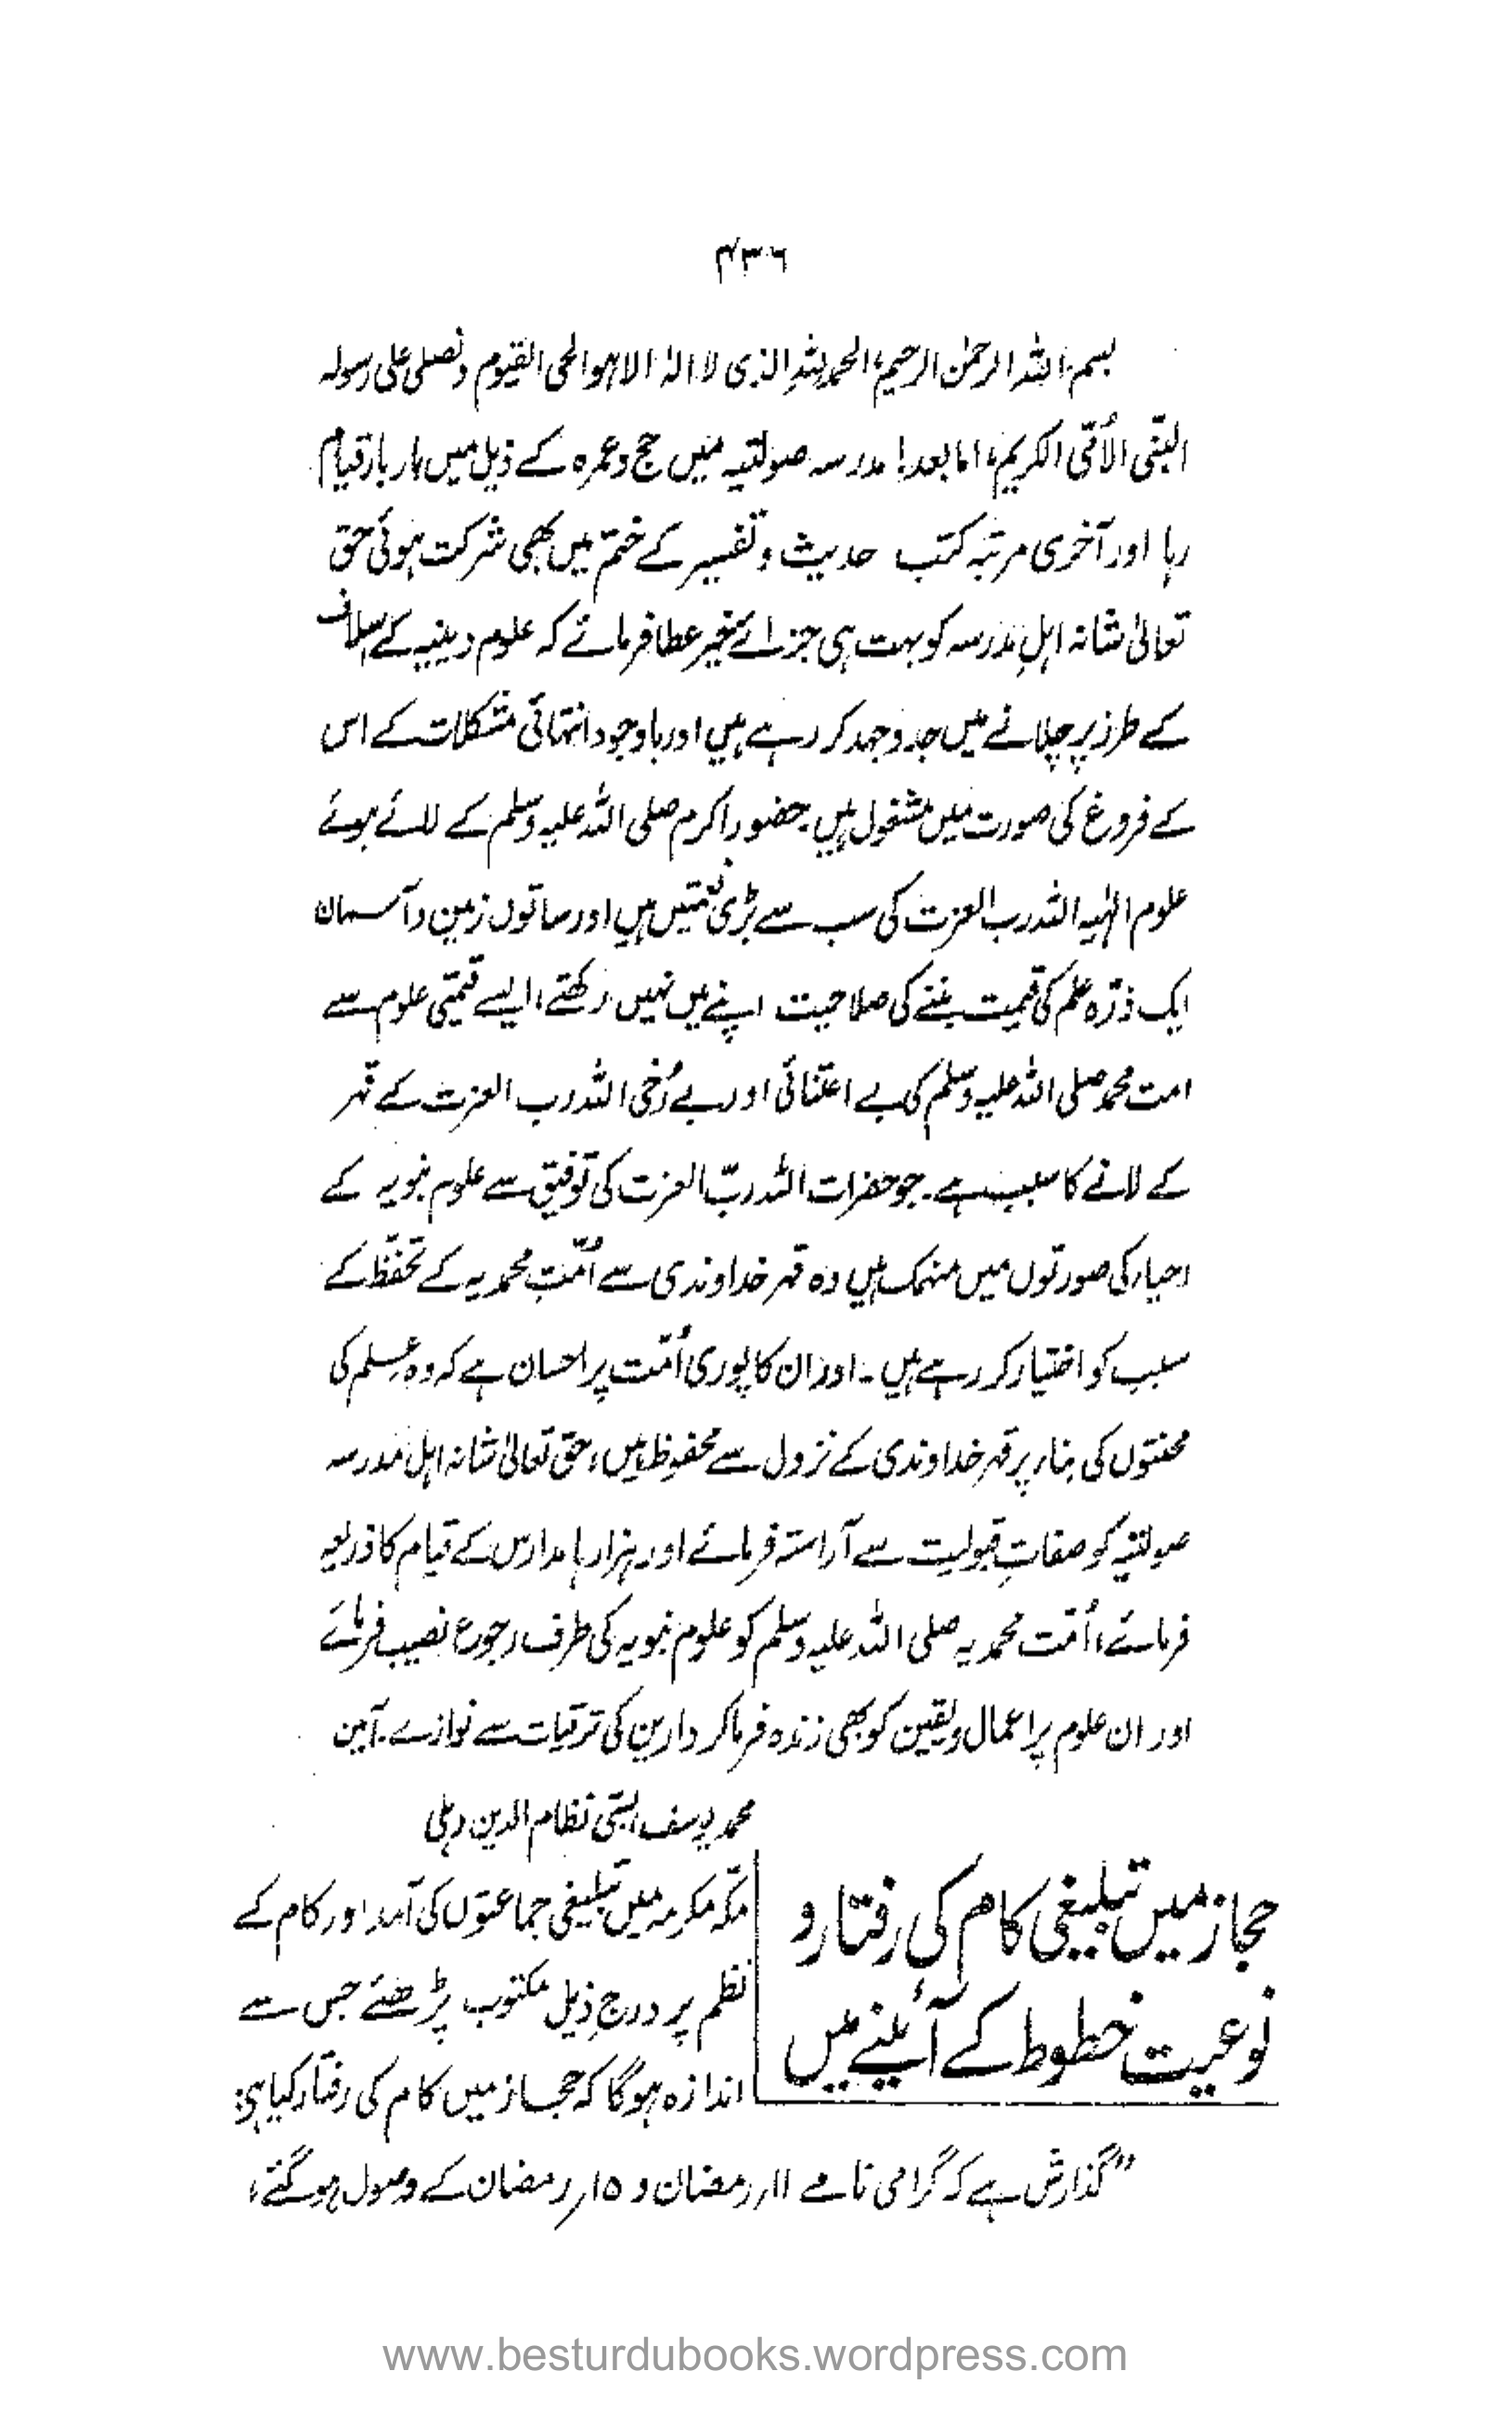 ۴۳۶
بسم اللہ الرحمٰن الرحیم، الحمد للہ الذی لا الہ الا ہو الحی القیوم ونصلی علی رسولہ
النبّی الاُمّی الکریم، اما بعد! مدرسہ صولتیہ میں حج وعمرہ کے ذیل میں بار بار قیام
رہا اور آخری مرتبہ کتب حدیث وتفسیر کے ختم میں بھی شرکت ہوئی حق
تعالیٰ شانہ اہلِ مدرسہ کو بہت ہی جزائے خیر عطا فرمائے کہ علوم دینیہ کے اسلاف
کے طرز پر چلانے میں جدوجہد کر رہے ہیں اور باوجود انتہائی مشکلات کے اس
کے فروغ کی صورت میں مشغول ہیں۔ حضور اکرم صلی اللہ علیہ وسلم کے لائے ہوئے
علوم الٰہیہ اللہ رب العزت کی سب سے بڑی نعمتیں ہیں اور ساتوں زمین وآسمان
ایک ذرّہ علم کی قیمت بننے کی صلاحیت اپنے میں نہیں رکھتے، ایسے قیمتی علوم سے
امت محمد صلی اللہ علیہ وسلم کی بے اعتنائی اور بے رُخی اللہ رب العزت کے قہر
کے لانے کا سبب ہے۔ جو حضرات اللہ ربّ العزت کی توفیق سے علوم نبویہ کے
احیاء کی صورتوں میں منہمک ہیں وہ قہر خداوندی سے اُمّتِ محمدیہ کے تحفّظ کے
سبب کو اختیار کر رہے ہیں۔ اور ان کا پوری اُمّت پر احسان ہے کہ وہ علم کی
محنتوں کی بناء پر قہر خداوندی کے نزول سے محفوظ ہیں، حق تعالیٰ شانہ اہل مدرسہ
صولتیہ کو صفاتِ قبولیت سے آراستہ فرمائے اور ہزارہا مدارس کے قیام کا ذریعہ
فرمائے، اُمّت محمدیہ صلی اللہ علیہ وسلم کو علوم نبویہ کی طرف رجوع نصیب فرمائے
اور ان علوم پر اعمال ویقین کو بھی زندہ فرما کر دارین کی ترقیات سے نوازے۔ آمین
محمد یوسف بستی نظام الدین دہلی
حجاز میں تبلیغی کام کی رفتار و
نوعیت خطوط کے آئینے میں
مکّہ مکرمہ میں تبلیغی جماعتوں کی آمد اور کام کے
نظم پر درج ذیل مکتوب پڑھئے جس سے
اندازہ ہوگا کہ حجاز میں کام کی رفتار کیا ہی:
"گذارش ہے کہ گرامی نامے ۱۱؍رمضان و ۱۵؍رمضان کے وصول ہو گئے،
www.besturdubooks.wordpress.com